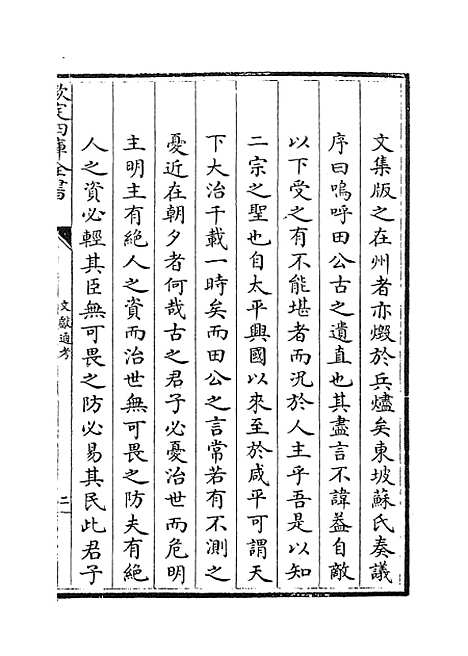 文集版之在州者亦燬於兵燼矣東坡蘇氏奏議
序曰嗚呼田公古之遺直也其盡言不諱葢自敵
以下受之有不能堪者而况於人主乎吾是以知
二宗之聖也自太平興國以來至於咸平可謂天
下大治千載一時矣而田公之言常若有不測之
憂近在朝夕者何哉古之君子必憂治世而危明
主明主有絶人之資而治世無可畏之防夫有絶
人之資必輕其臣無可畏之防必易其民此君子
欽定四庫全書
文獻通考
二